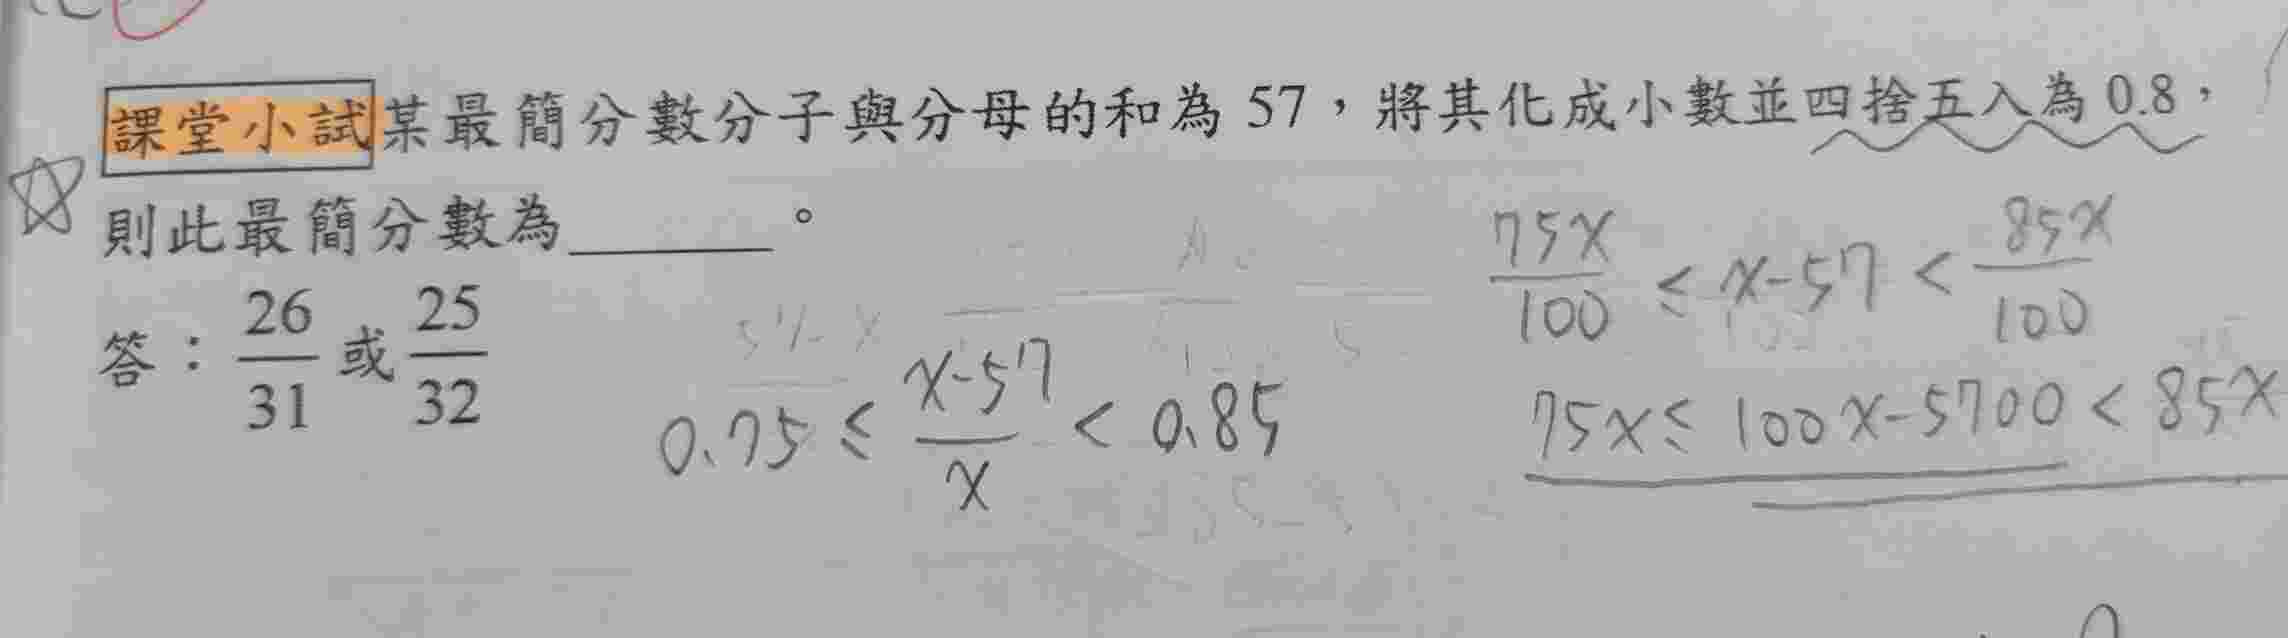 課堂小試 某最簡分數分子與分母的和為 57，將其化成小數並四捨五入為 0.8，
則此最簡分數為______。
答：26/31 或 25/32
0.75 ≤ (x-57)/x < 0.85
75x/100 ≤ x-57 < 85x/100
75x ≤ 100x-5700 < 85x